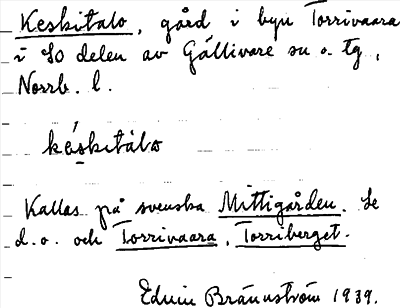 Keskitalo, gård i byn Torrivaara
i SO delen av Gällivare sn o. tg,
Norrb. l.
késkitàlo
Kallas på svenska Mittigården. Se
d.o. och Torrivaara, Torriberget.
Edvin Brännström 1939.